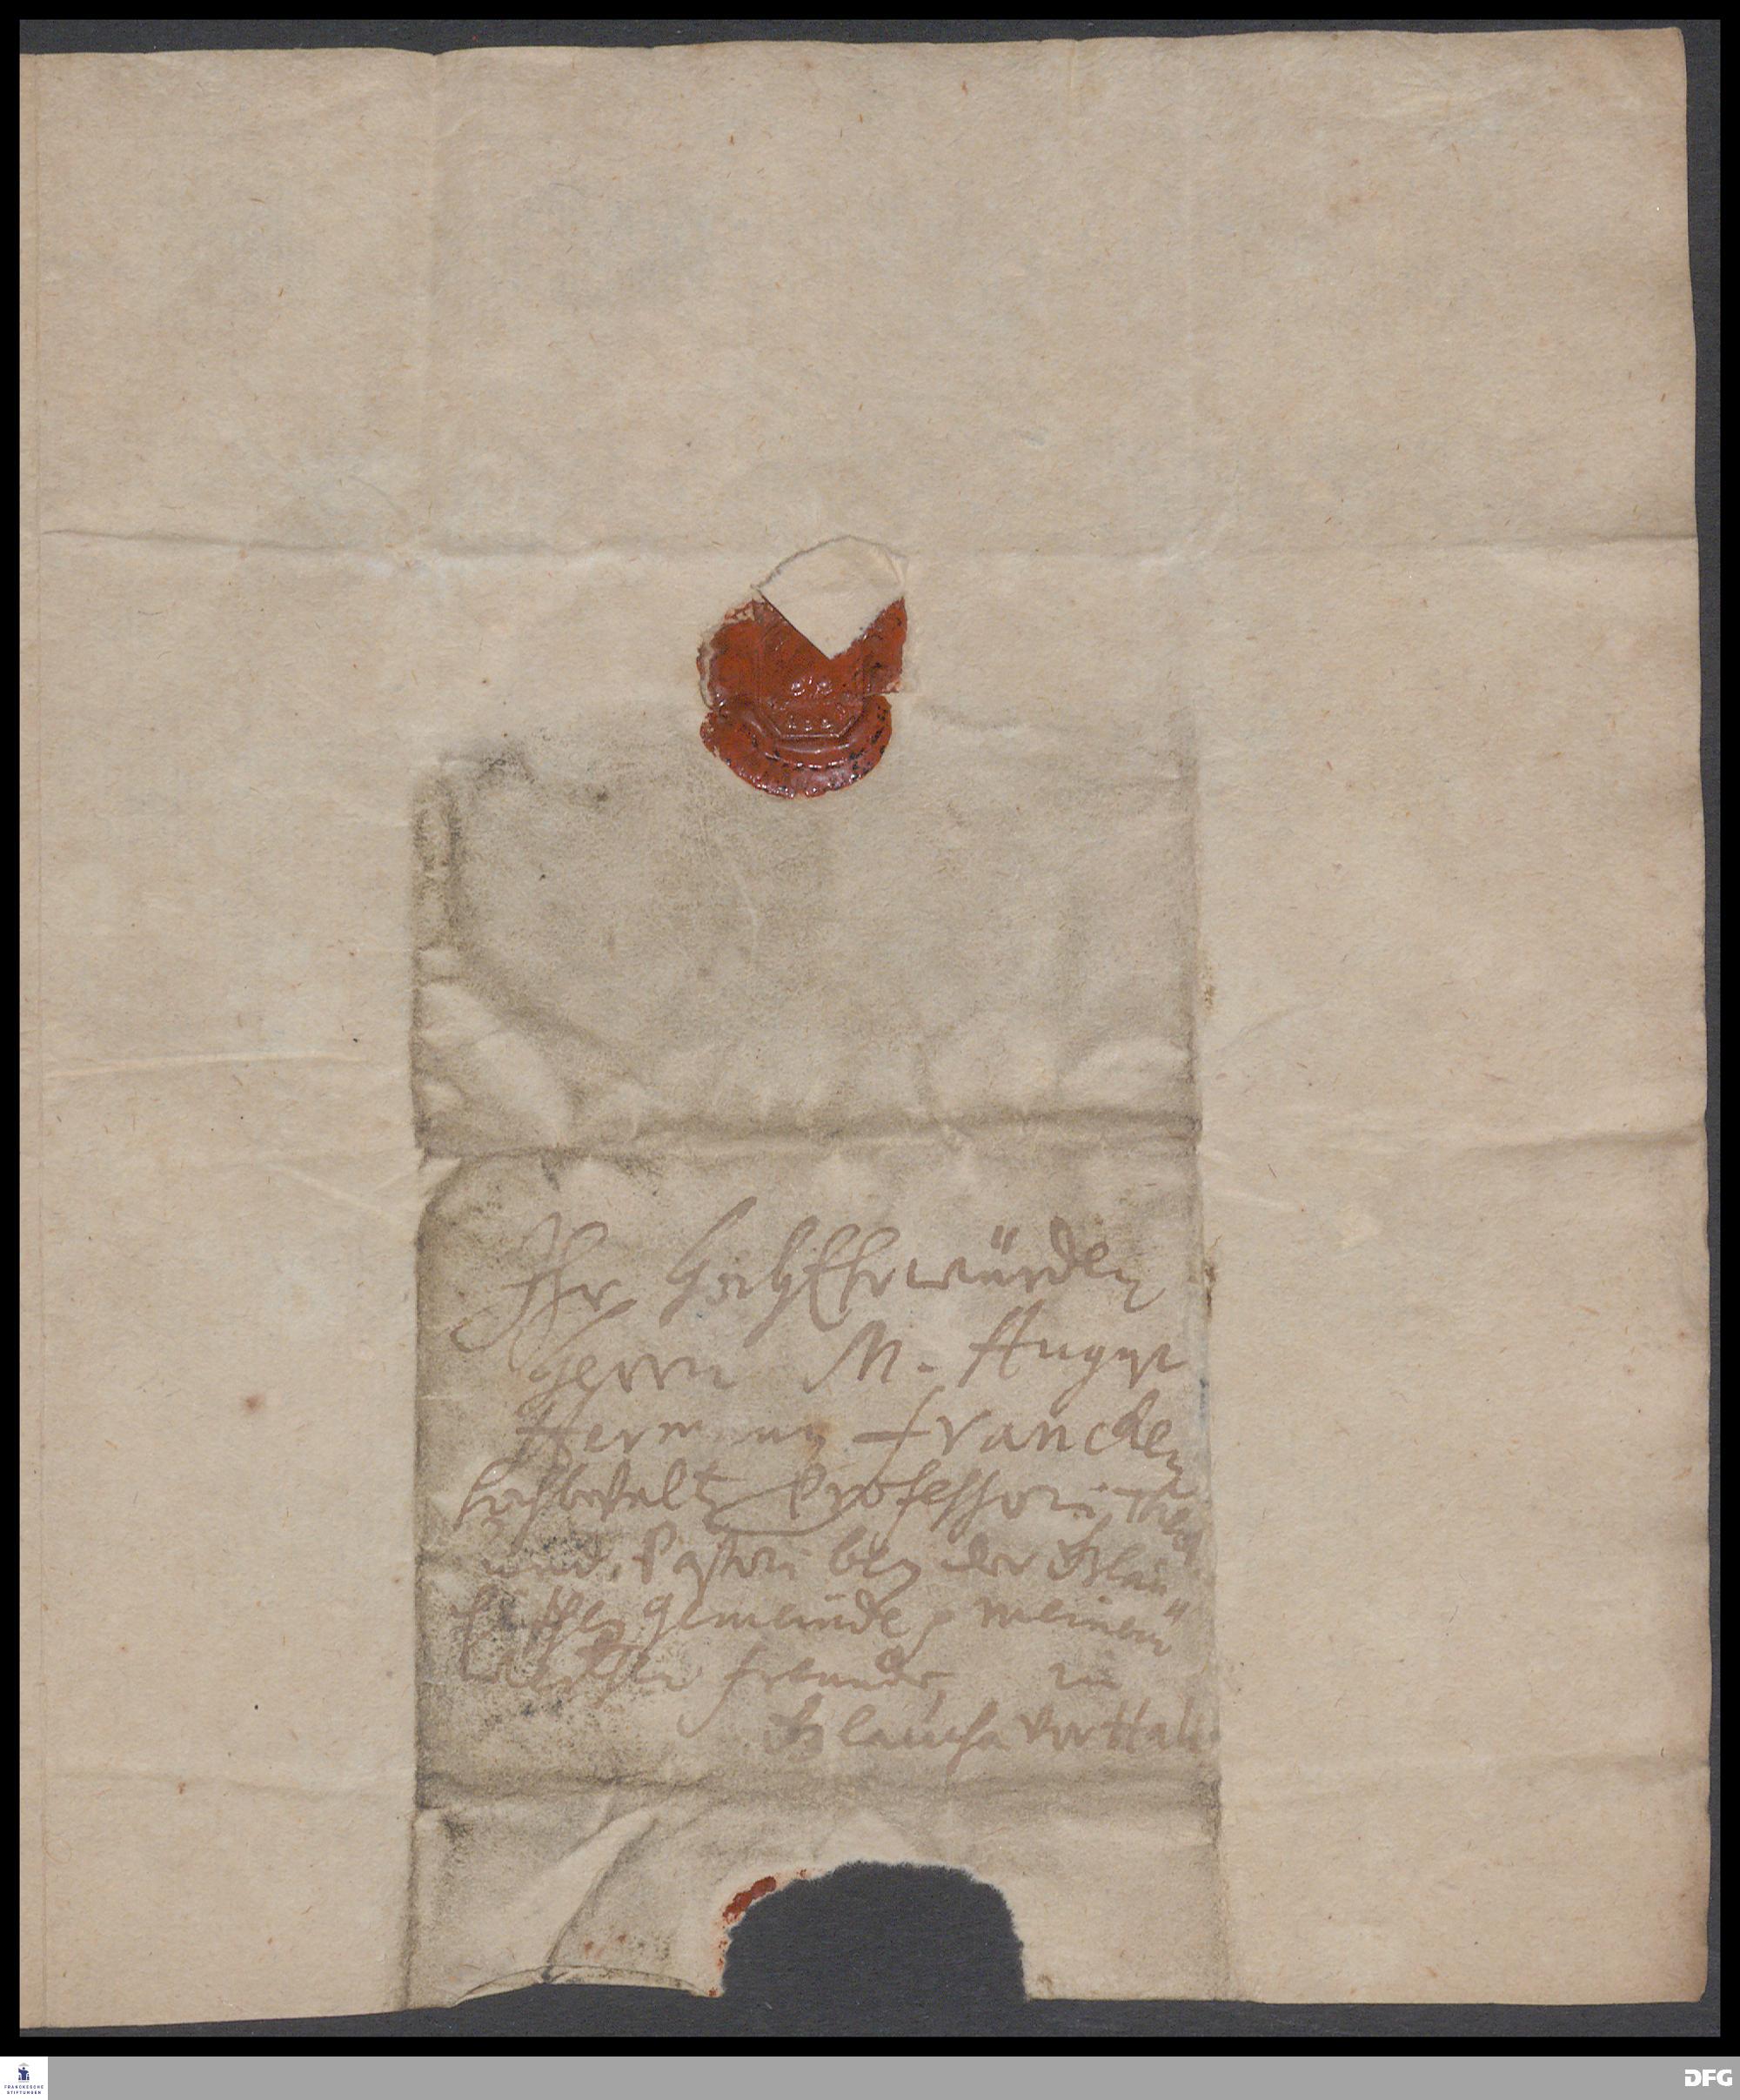 Ihr HochEhrwürden
Herrn M. August
Hermann Francken
hochbestalt Professori Theol
und Pastori bey der Glau
chischen Gemeinde, meinem
werthen freunde, in
Glaucha vor Hall.
FRANCKESCHE
STIFTUNGEN
DFG